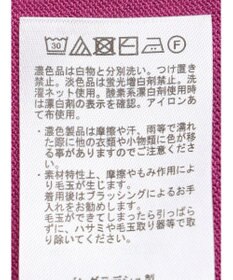 30
F
濃色品は白物と分別洗い。つけ置き
禁止。淡色品は蛍光増白剤禁止。洗
濯ネット使用。酸素系漂白剤使用時
は漂白剤の表示を確認。アイロンあ
て布使用。
・濃色製品は摩擦や汗、雨等で濡れ
た際に他の衣類や小物類に色が移
る事がありますのでご注意くださ
い。
・素材特性上、摩擦やもみ作用によ
り毛玉が生じます。
着用後はブラッシングによるお手
入れをお勧めします。
毛玉ができてしまったら引っぱら
ずに、ハサミや毛玉取り器等で取
り除いてください。